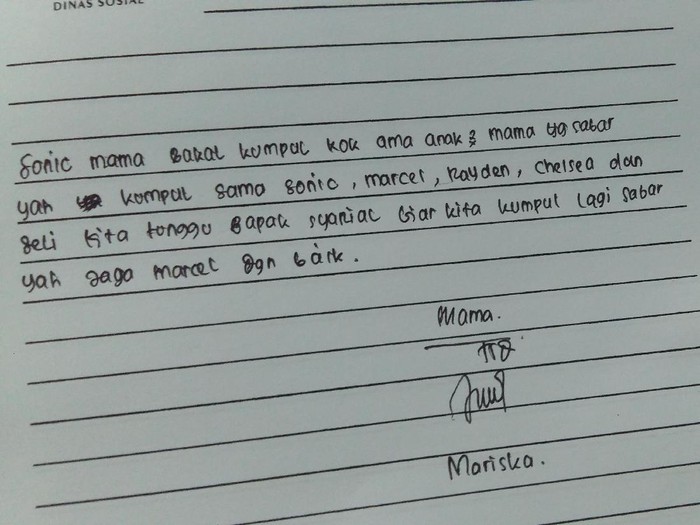 DINAS SOSIAL
Sonic mama bakal kumpul kok ama anak2 mama yg sabar
yah kumpul sama sonic, marcel, rayden, chelsea dan
seli kita tonggu bapak syanial biar kita kumpul lagi sabar
yah jaga marcel dgn baik.
Mama.
ttd
Mariska.